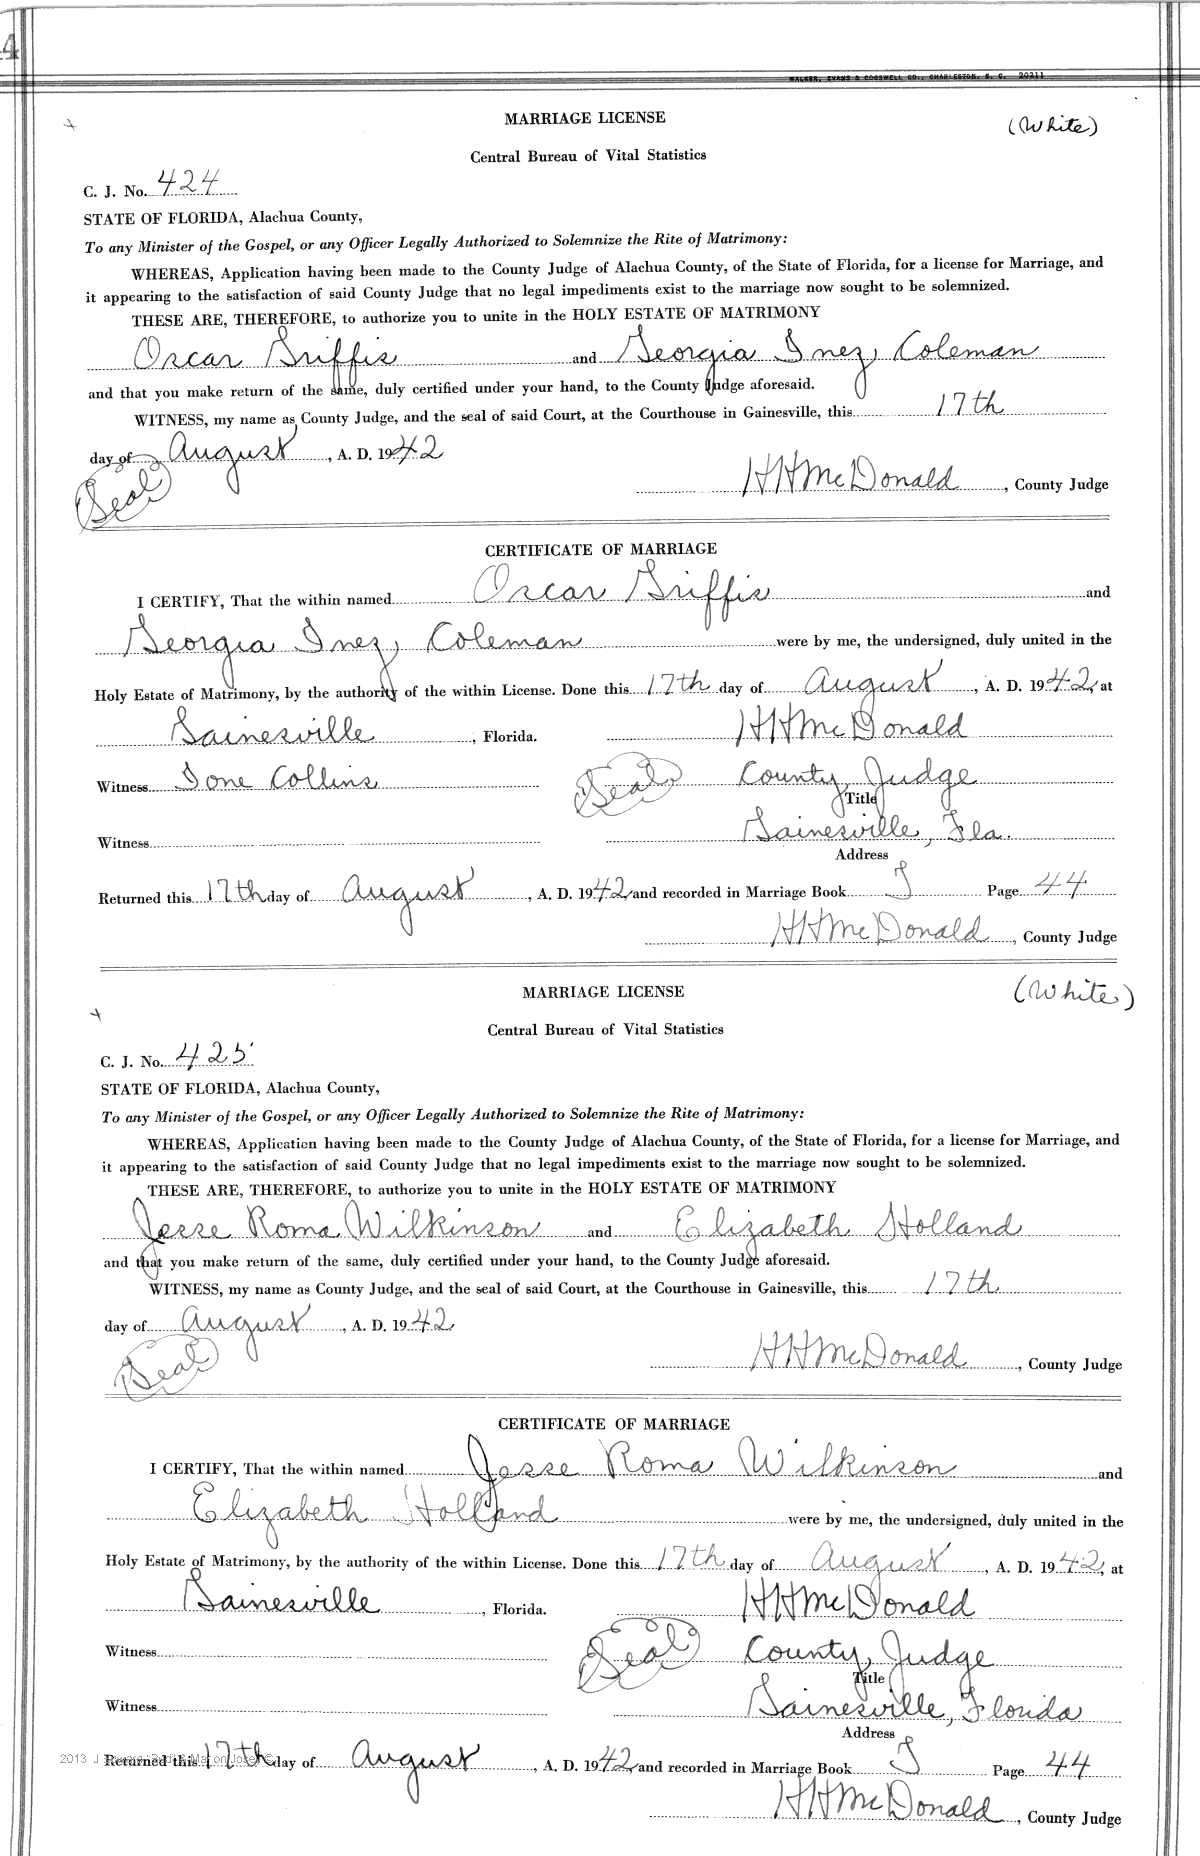 4
WALKER, EVANS & COGSWELL CO., CHARLESTON, S. C. 20211
MARRIAGE LICENSE
(White)
Central Bureau of Vital Statistics
C. J. No. 424
STATE OF FLORIDA, Alachua County,
To any Minister of the Gospel, or any Officer Legally Authorized to Solemnize the Rite of Matrimony:
WHEREAS, Application having been made to the County Judge of Alachua County, of the State of Florida, for a license for Marriage, and
it appearing to the satisfaction of said County Judge that no legal impediments exist to the marriage now sought to be solemnized.
THESE ARE, THEREFORE, to authorize you to unite in the HOLY ESTATE OF MATRIMONY
Oscar Griffis and Georgia Inez Coleman
and that you make return of the same, duly certified under your hand, to the County Judge aforesaid.
WITNESS, my name as County Judge, and the seal of said Court, at the Courthouse in Gainesville, this 17th
day of August, A. D. 1942
Seal
HHMcDonald, County Judge
CERTIFICATE OF MARRIAGE
I CERTIFY, That the within named Oscar Griffis and
Georgia Inez Coleman were by me, the undersigned, duly united in the
Holy Estate of Matrimony, by the authority of the within License. Done this 17th day of August, A. D. 1942, at
Gainesville, Florida. HHMcDonald
Witness Ione Collins Seal County Judge
Title
Witness Gainesville, Fla.
Address
Returned this 17th day of August, A. D. 1942 and recorded in Marriage Book J Page 44
HHMcDonald, County Judge
MARRIAGE LICENSE
(White)
Central Bureau of Vital Statistics
C. J. No. 425
STATE OF FLORIDA, Alachua County,
To any Minister of the Gospel, or any Officer Legally Authorized to Solemnize the Rite of Matrimony:
WHEREAS, Application having been made to the County Judge of Alachua County, of the State of Florida, for a license for Marriage, and
it appearing to the satisfaction of said County Judge that no legal impediments exist to the marriage now sought to be solemnized.
THESE ARE, THEREFORE, to authorize you to unite in the HOLY ESTATE OF MATRIMONY
Jesse Roma Wilkinson and Elizabeth Holland
and that you make return of the same, duly certified under your hand, to the County Judge aforesaid.
WITNESS, my name as County Judge, and the seal of said Court, at the Courthouse in Gainesville, this 17th
day of August, A. D. 1942
Seal
HHMcDonald, County Judge
CERTIFICATE OF MARRIAGE
I CERTIFY, That the within named Jesse Roma Wilkinson and
Elizabeth Holland were by me, the undersigned, duly united in the
Holy Estate of Matrimony, by the authority of the within License. Done this 17th day of August, A. D. 1942, at
Gainesville, Florida. HHMcDonald
Witness Seal County Judge
Title
Witness Gainesville, Florida
Address
2013
Returned this 17th day of August, A. D. 1942 and recorded in Marriage Book J Page 44
HHMcDonald, County Judge